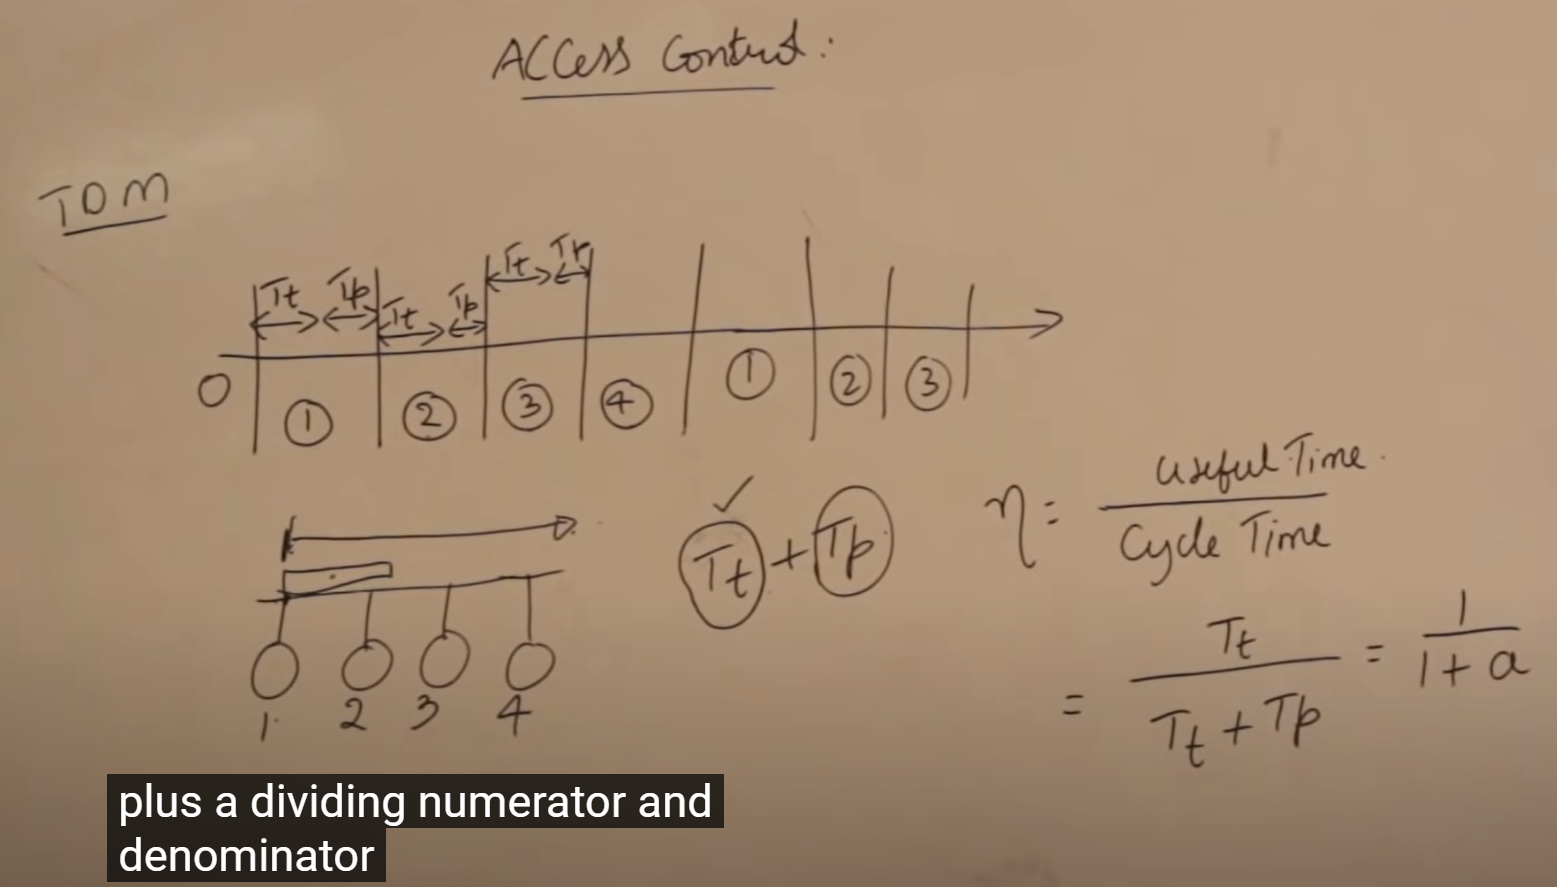 Access Control:
TDM
Tt Tp Tt Tp Tt Tp
0 1 2 3 4 1 2 3
Tt + Tp
η = Useful Time
Cycle Time
= Tt
Tt + Tp
= 1
1 + a
1 2 3 4
plus a dividing numerator and
denominator